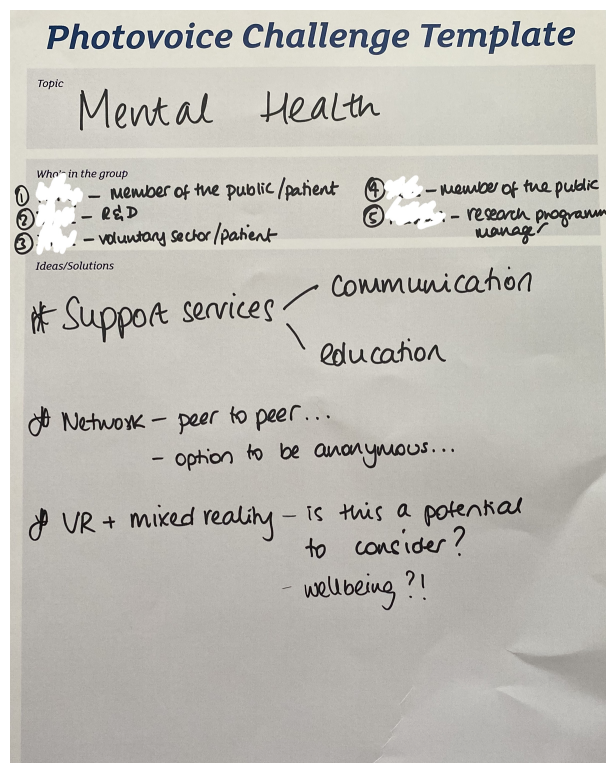 Photovoice Challenge Template
Topic
Mental Health
Who's in the group
① – member of the public/patient
② – R&D
③ – voluntary sector/patient
④ – member of the public
⑤ – research programm
manager
Ideas/Solutions
* Support services
communication
education
* Network – peer to peer...
– option to be anonymous...
* VR + mixed reality – is this a potential
to consider?
- wellbeing?!